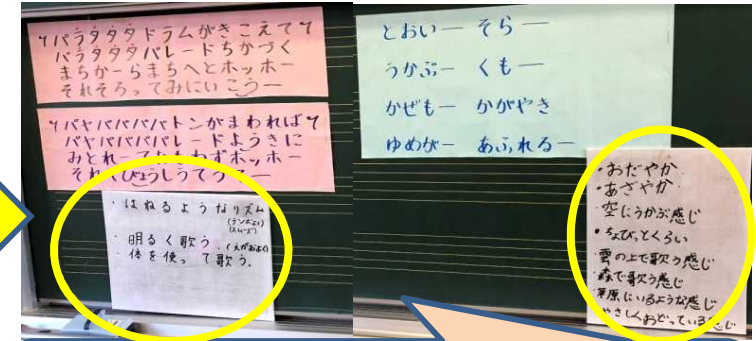 パラタタタドラムがきこえて
パラタタタパレードちかづく
まちかーらまちへとホッホー
それそろってみにいこうー
パヤパパパパバトンがまわれば
パヤパパパパパレードようきに
みとれーておもわずホッホー
それ びょうしうてうてー
・はねるようなリズム
(テンポよく)
(スムーズ)
・明るく歌う.(えがおよく)
・体を使って歌う.
とおいー そらー
うかぶー くもー
かぜもー かがやき
ゆめがー あふれるー
・おだやか
・あざやか
・空にうかぶ感じ
・ちょびっとくらい
・雲の上で歌う感じ
・森で歌う感じ
・草原にいるような感じ
・やさしくおどっている感じ